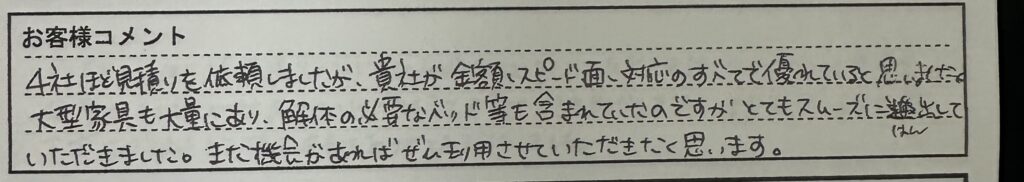 お客様コメント
4社ほど見積りを依頼しましたが、貴社が金額、スピード面、対応のすべてで優れていると思いました。
大型家具も大量にあり、解体の必要なベッド等も含まれていたのですがとてもスムーズに搬出して
はん
いただきました。また機会があればぜひ利用させていただきたく思います。